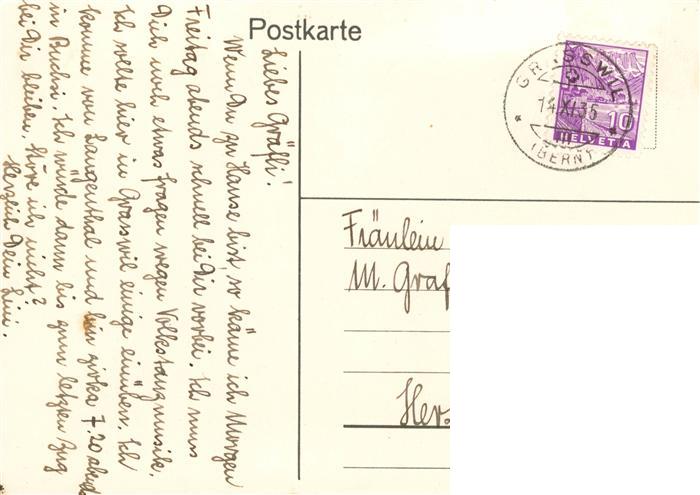 Postkarte
Liebes Gräffi!
Wenn Du zu Hause bist, so käme ich Morgen
Freitag abends schnell bei Dir vorbei. Ich muss
Dich noch etwas fragen wegen Volkstanzmusik.
Ich sollte hier in Grasswil einige einüben. Ich
komme von Langenthal und bin zirka 7.20 abends
in Buchsi. Ich würde dann bis zum letzten Zug
bei Dir bleiben. Störe ich nicht?
Herzlich Dein Lini.
GRASSWIL
14.XI.35
(BERN)
10
HELVETIA
Fräulein
M. Graf